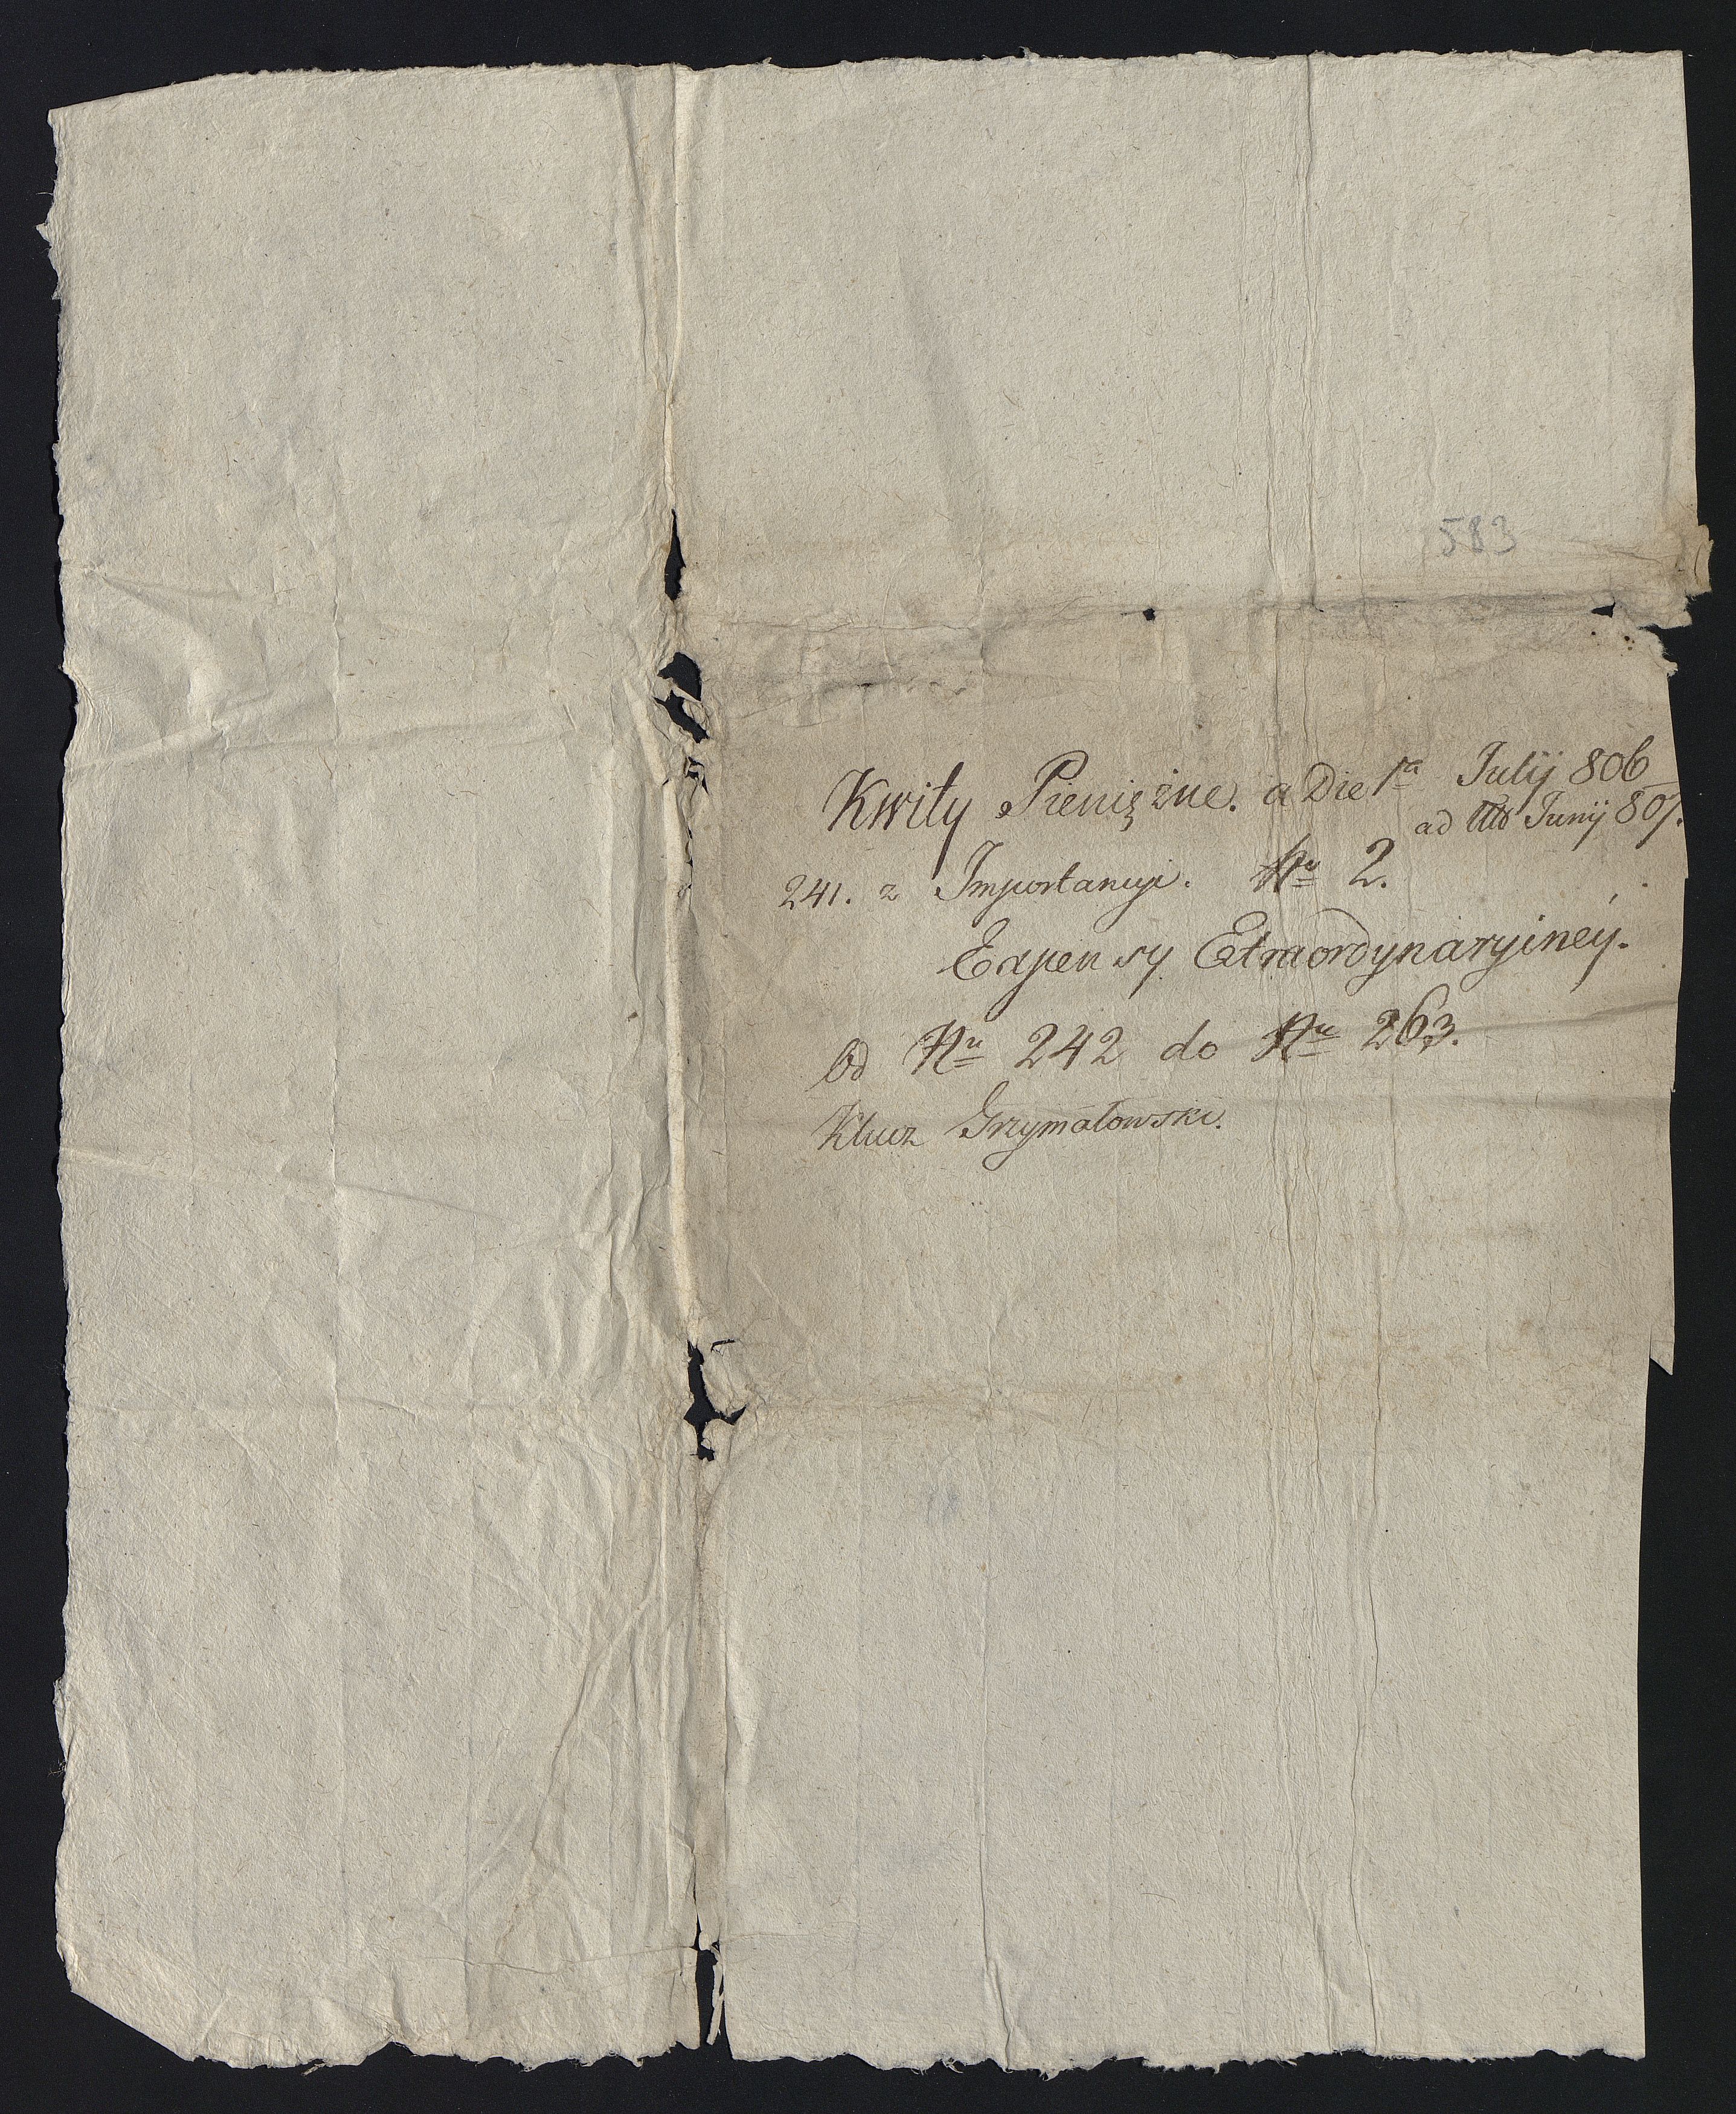 583
Kwity Pieniężne. a Die 1ª Julij 806
ad Ult Junij 807.
241. z Importancyi. Nr̲o̲ 2.
Expensy Extraordynaryiney.
Od Nro 242 do Nro 263.
Klucz Grzymałowski.